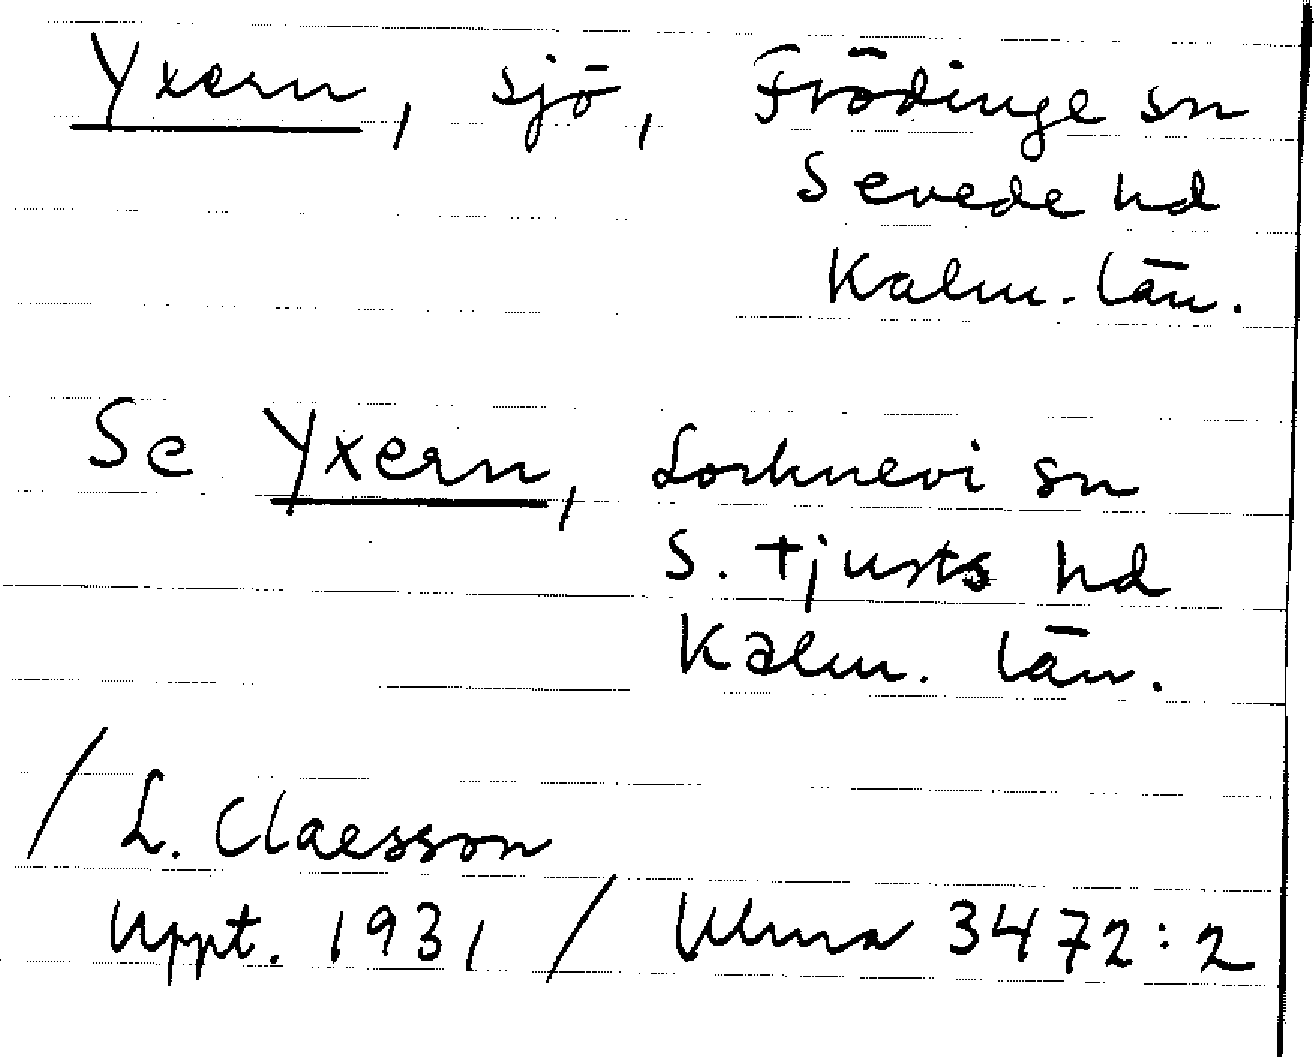 Yxern, sjö, Frödinge sn
Sevede hd
Kalm. län.
Se Yxern, Lochnevi sn
S. Tjusts hd
Kalm. län.
/ L. Claesson
Uppt. 1931 / Ulma 3472:2